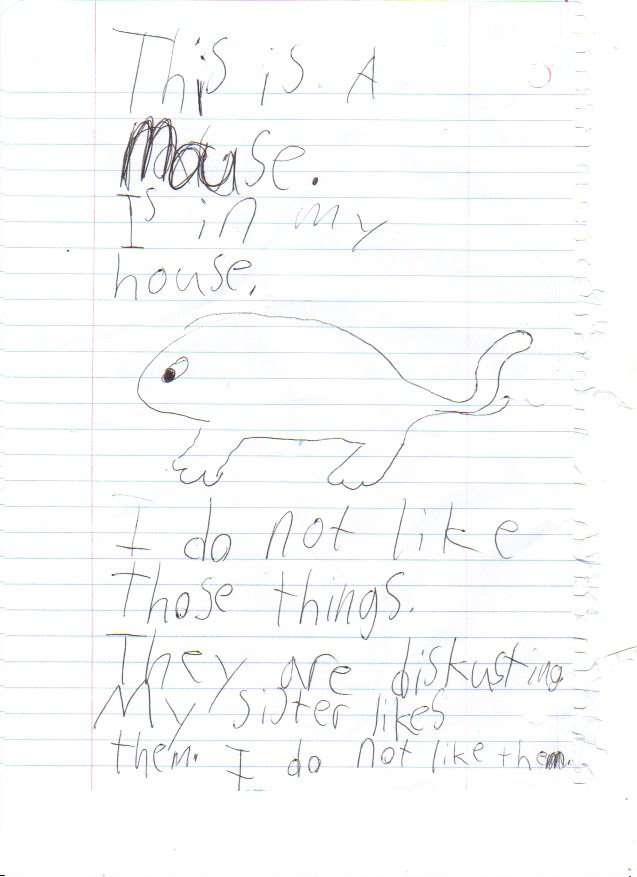 This is A
Mouse.
Is in my
house.
I do not like
those things.
They are diskusting
My sister likes
them. I do not like them.